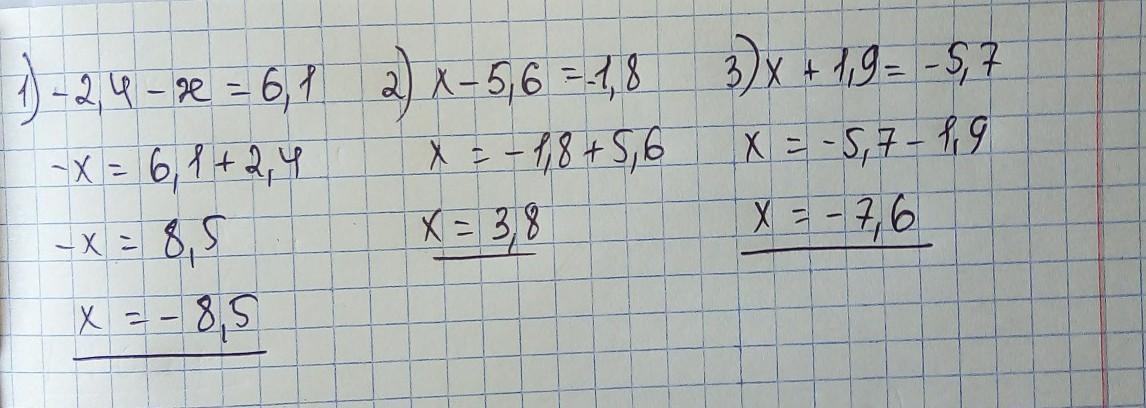 1) -2,4 - x = 6,1
-x = 6,1 + 2,4
-x = 8,5
x = - 8,5
2) x - 5,6 = -1,8
x = -1,8 + 5,6
x = 3,8
3) x + 1,9 = -5,7
x = -5,7 - 1,9
x = -7,6